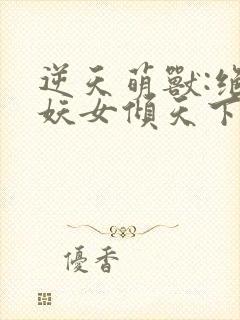 逆天萌獸:絕
妖女傾天下
優香